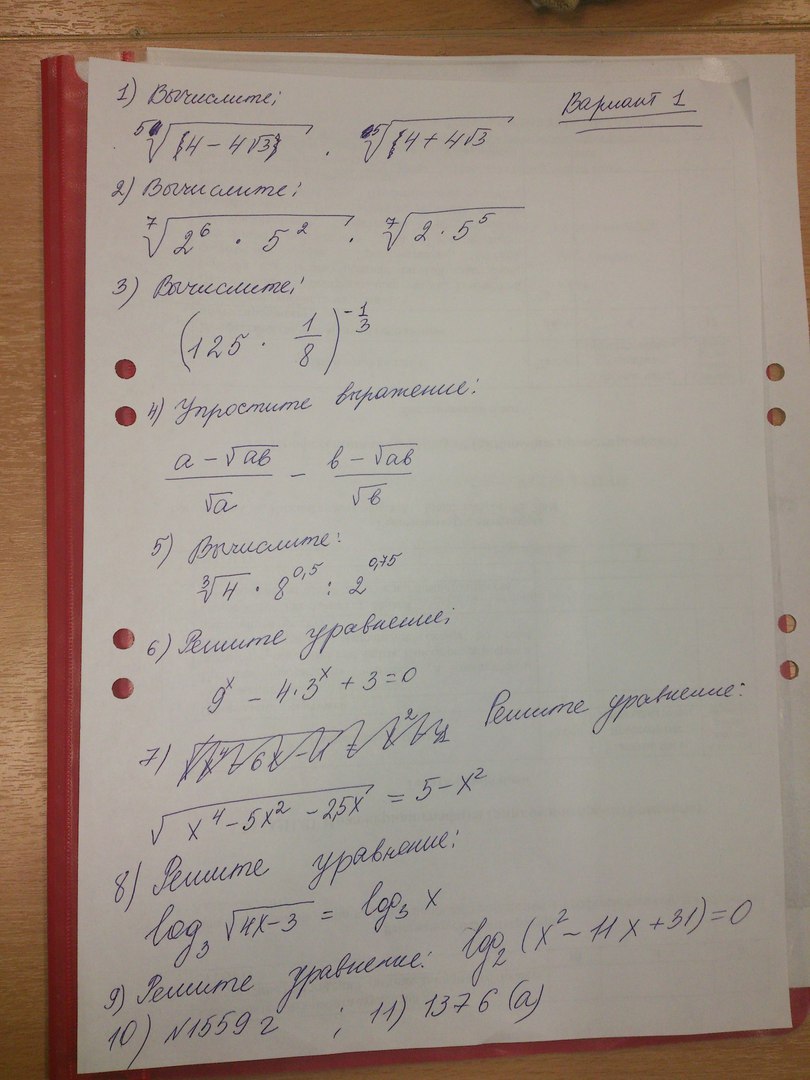 Вариант 1
1) Вычислите:
⁵√(4 - 4√3) · ⁵√(4 + 4√3)
2) Вычислите:
⁷√(2⁶ · 5²) · ⁷√(2 · 5⁵)
3) Вычислите:
(125 · 1/8)^(-1/3)
4) Упростите выражение:
(a - √ab)/√a - (b - √ab)/√b
5) Вычислите:
³√4 · 8^0,5 : 2^0,75
6) Решите уравнение:
9ˣ - 4·3ˣ + 3 = 0
7) Решите уравнение:
√(x⁴ - 5x² - 25x) = 5 - x²
8) Решите уравнение:
log₃ √(4x-3) = log₃ x
9) Решите уравнение: log₂ (x² - 11x + 31) = 0
10) №1559 г ; 11) 1376 (а)